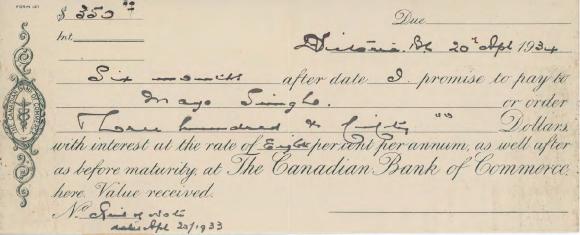 FORM 141
$ 350 00 Due
Int.
Victoria. BC 20th Apl 1934
Six months after date I promise to pay to
Mayo Singh. or order
Three hundred & fifty "" Dollars
with interest at the rate of Eight per cent per annum, as well after
as before maturity, at The Canadian Bank of Commerce
here. Value received.
No. of Note
dated Apl 20/1933
THE CANADIAN BANK OF COMMERCE